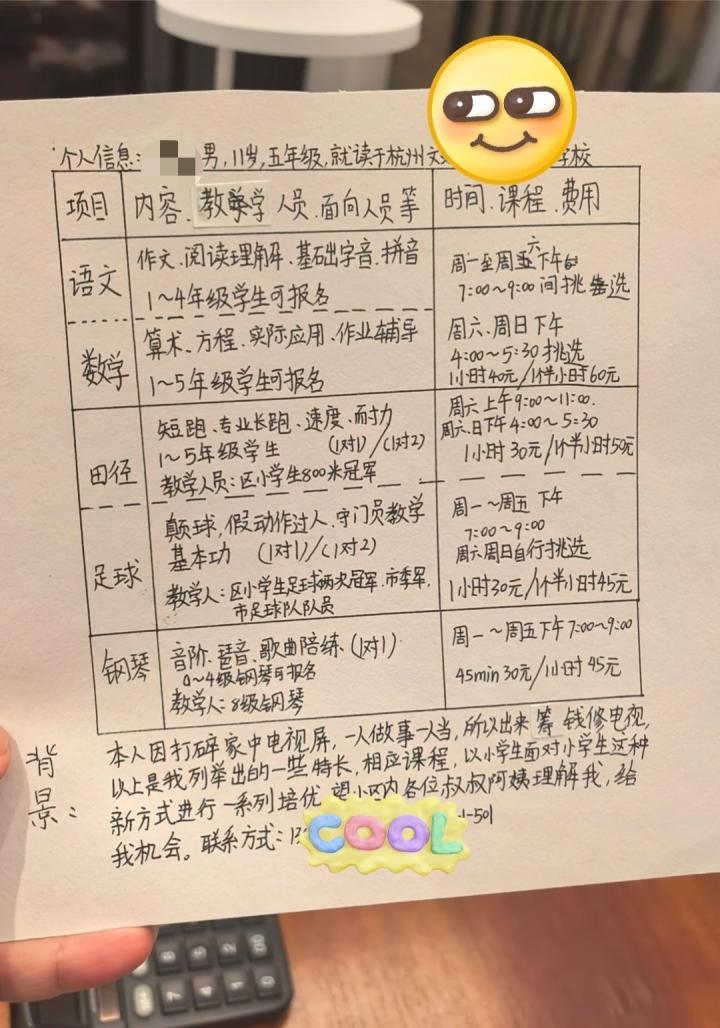 个人信息: 男,11岁,五年级,就读于杭州文 学校
项目 内容、教学人员、面向人员等 时间、课程、费用
语文 作文、阅读理解、基础字音、拼音
1~4年级学生可报名
周一至周六下午
7:00~9:00间挑选
数学 算术、方程、实际应用、作业辅导
1~5年级学生可报名
周六、周日下午
4:00~5:30挑选
1小时40元/1个半小时60元
田径 短跑、专业长跑、速度、耐力
1~5年级学生 (1对1)/(1对2)
教学人员:区小学生800米冠军
周六上午9:00~11:00.
周六.日下午4:00~5:30
1小时30元/1个半小时50元
足球 颠球,假动作过人、守门员教学
基本功 (1对1)/(1对2)
教学人:区小学生足球两次冠军.市季军.
市足球队队员
周一~周五 下午
7:00~9:00
周六周日自行挑选
1小时30元/1个半小时45元
钢琴 音阶、琶音、歌曲陪练、(1对1)
0~4级钢琴可报名
教学人:8级钢琴
周一~周五下午7:00~9:00
45min 30元/1小时45元
背景:
本人因打碎家中电视屏,一人做事一人当,所以出来筹钱修电视,
以上是我列举出的一些特长,相应课程,以小学生面对小学生这种
新方式进行一系列培优,望小区内各位叔叔阿姨理解我,给
我机会。联系方式:13 -1-501
COOL